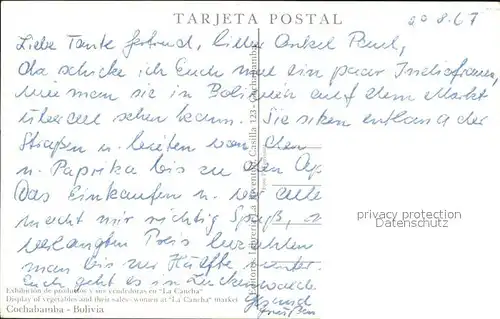 TARJETA POSTAL
20.8.67
Liebe Tante Gertrud, lieber Onkel Paul,
da schicke ich Euch mal ein paar Indiofrauen,
wie man sie in Bolivien auf dem Markt
überall sehen kann. Sie sitzen entlang der
Straßen u. bieten von
u. Paprika bis zu den
Das Einkaufen u.
macht mir richtig Spaß,
verlangten Preis
man bis zur Hälfte
Euch geht es in
privacy protection
Datenschutz
Exhibición de productos y sus vendedoras en "La Cancha"
Display of vegetables and their sales-women at "La Cancha" market
Cochabamba - Bolivia
Casilla 123 - Cochabamba